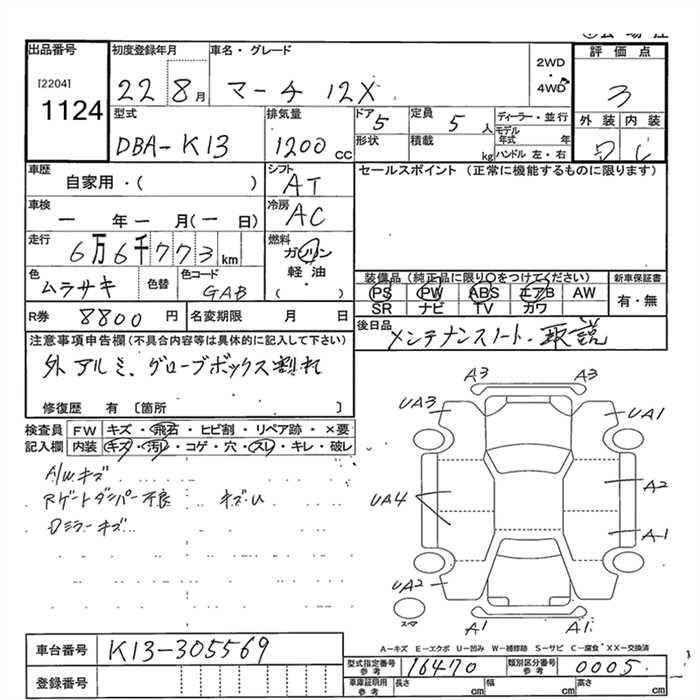 出品番号 初度登録年月 車名・グレード 評価点
[2204] 1124
22 8月 マーチ 12X 2WD・4WD 3
型式 排気量 ドア 定員 ディーラー・並行 外装 内装
DBA-K13 1200cc 5 5人 モデル年式 年
形状 積載 kg ハンドル 左・右
車歴 シフト セールスポイント(正常に機能するものに限ります)
自家用・( ) AT
車検 冷房
一 年 一 月(一 日) AC
走行 燃料
6万6千773km ガソリン
軽油
( ・ )
色 色替 色コード 装備品(純正品に限り○をつけてください) 新車保証書
ムラサキ GAB PS PW ABS エアB AW 有・無
SR ナビ TV カワ
R券 8800円 名変期限 月 日 後日品
メンテナンスノート・取説
注意事項申告欄(不具合内容等は具体的に記入して下さい)
外アルミ、グローブボックス割れ
修復歴 有〔箇所 〕
検査員 FW キズ・飛石・ヒビ割・リペア跡・×要
記入欄 内装 キズ・汚レ・コゲ・穴・スレ・キレ・破レ
A/Wキズ
Rゲートダンパー不良 キズU
Dミラーキズ
A3 A3
UA3 UA1
UA4 A2
A1
UA2
スマ A1 A1
A-キズ E-エクボ U-凹み W-補修跡 S-サビ C-腐食 XX-交換済
車台番号 K13-305569
型式指定番号 参考 16470 類別区分番号 参考 0005
登録番号 車庫証明用 参考 長さ cm 幅 cm 高さ cm